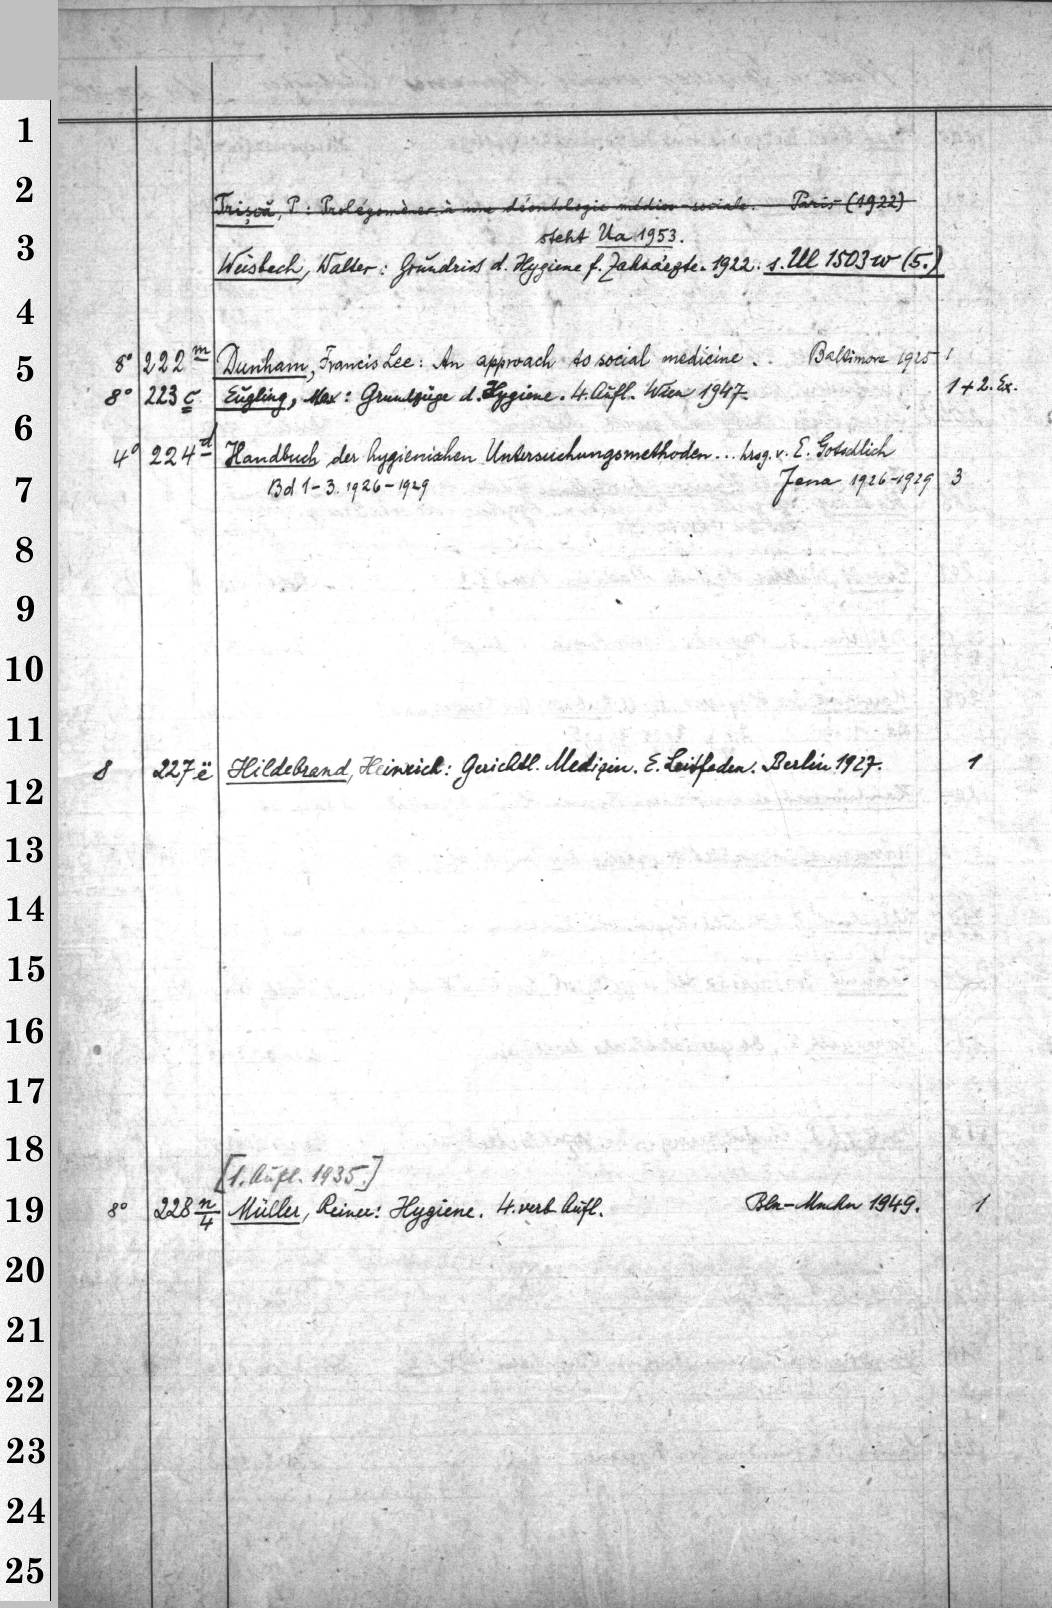 1
2
Trișcă, P: Prolégomènes à une déontologie médico-sociale. Paris (1922)
steht Ua 1953.
3
Weisbach, Walter: Grundriss d. Hygiene f. Zahnärzte. 1922. s. Ul 1503 w (5.)
4
5
8° 222 m Dunham, Francis Lee: An approach to social medicine. . Baltimore 1925 1
8° 223 c Eugling, Max: Grundzüge d. Hygiene. 4. Aufl. Wien 1947. 1 + 2. Ex.
6
4° 224 d Handbuch der hygienischen Untersuchungsmethoden... hrsg. v. E. Gotschlich
7
Bd 1-3. 1926-1929 Jena 1926-1929 3
8
9
10
11
8 227 ë Hildebrand, Heinrich: Gerichtl. Medizin. E. Leitfaden. Berlin 1927. 1
12
13
14
15
16
17
18
[1. Aufl. 1935.]
19
8° 228 n/4 Müller, Reiner: Hygiene. 4. verb. Aufl. Bln-Mnchn 1949. 1
20
21
22
23
24
25